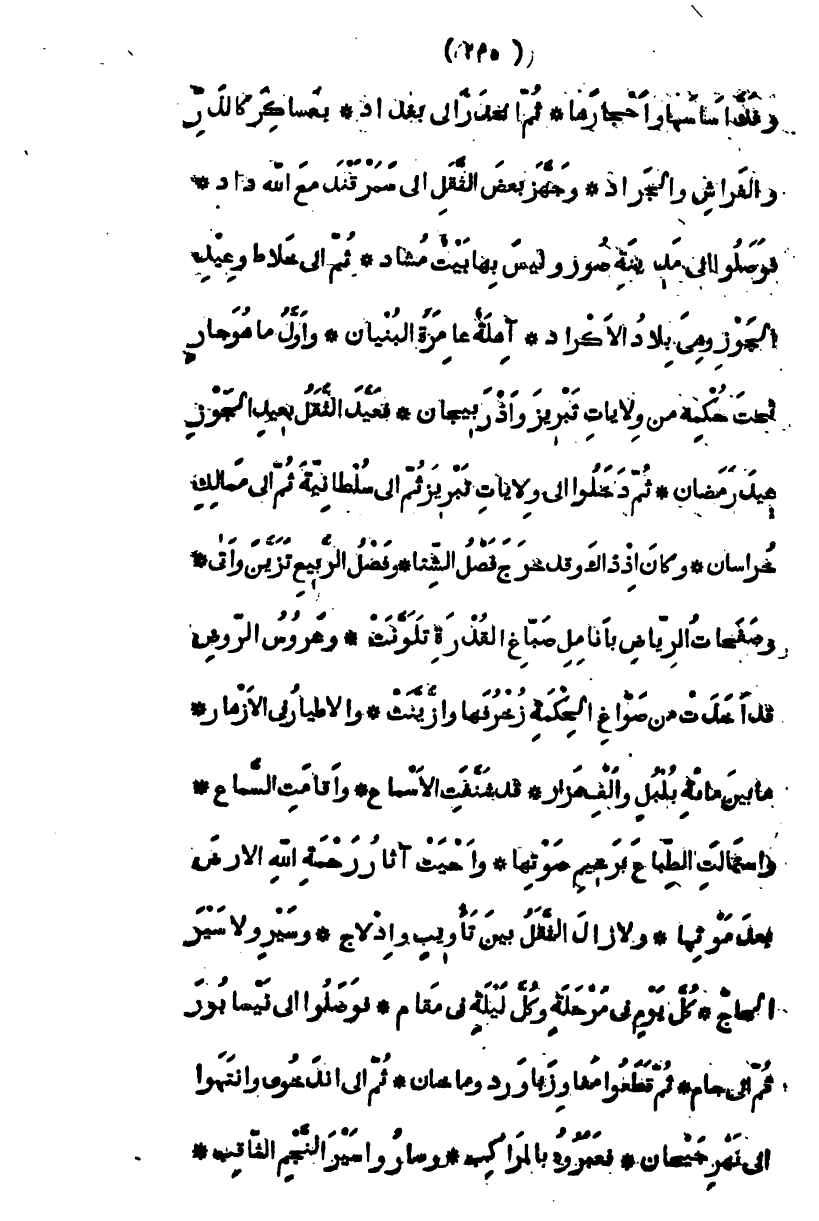 ( ٢٩٥ )
وفَكَّ اَساسَها واَحْجارَها * ثُمَّ انحدَرَ الى بغداد * بعَساكِرَ كالذَّرِّ
والفَراشِ والجَراد * وجَهَّزَ بعضَ الثَّقَلِ الى سَمَرْقَنْدَ معَ اللّٰه داد *
فوَصَلُوا الى مَدينَةِ صُور وليسَ بِها بَيْتٌ مُشاد * ثُمَّ الى خَلاط وعِيْدِ
الجَوْزِ وهِىَ بِلادُ الاَكْراد * آهِلَةٌ عامِرَةُ البُنْيان * واَوَّلُ ما هُوَ جارٍ
تحتَ حُكْمِه من وِلاياتِ تَبْرِيزَ واَذْرَبِيجان * فعَيَّدَ الثَّقَلُ بعِيدِ الجَوْزِ
عيدَ رَمَضان * ثُمَّ دَخَلُوا الى وِلاياتِ تَبْرِيزَ ثُمَّ الى سُلْطانِيَّةَ ثُمَّ الى مَمالِكِ
خُراسان * وكانَ اِذ ذاكَ وقد خرَجَ فَصْلُ الشِّتا * وفَصْلُ الرَّبِيعِ تَزَيَّنَ واَتٰى *
وصَفَحاتُ الرِّياضِ بأنامِلِ صَبّاغِ القُدْرَةِ تَلَوَّنَتْ * وعَرُوسُ الرَّوضِ
قد اَخَذَتْ من صَوّاغِ الحِكْمَةِ زُخْرُفَها وازَّيَّنَتْ * والاطيارُ فى الاَزْهار *
ما بينَ مائةِ بُلْبُلٍ واَلْفِ هَزار * قد شَنَّفَتِ الاَسْماع * واَقامَتِ السَّماع *
واستَمالَتِ الطِّباعَ بَرَخِيمِ صَوْتِها * واَحْيَتْ آثارُ رَحْمَةِ اللّٰهِ الارضَ
بعدَ مَوْتِها * ولا زالَ الثَّقَلُ بينَ تَأْوِيبٍ واِدْلاج * وسَيْرٍ ولا سَيْرَ
الحاجّ * كُلَّ يَوْمٍ فى مَرْحَلَةٍ وكُلَّ لَيْلَةٍ فى مَقام * فوَصَلُوا الى نَيْسابُورَ
ثُمَّ الى جام * ثُمَّ قَطَعُوا مَفاوِزَ باوَرد وماخان * ثُمَّ الى اندَخُوى وانتَهَوا
الى نَهْرِ جَيْحان * فعَبَرُوهُ بالمَراكِب * وسارُوا سَيْرَ النَّجْمِ الثّاقِب *